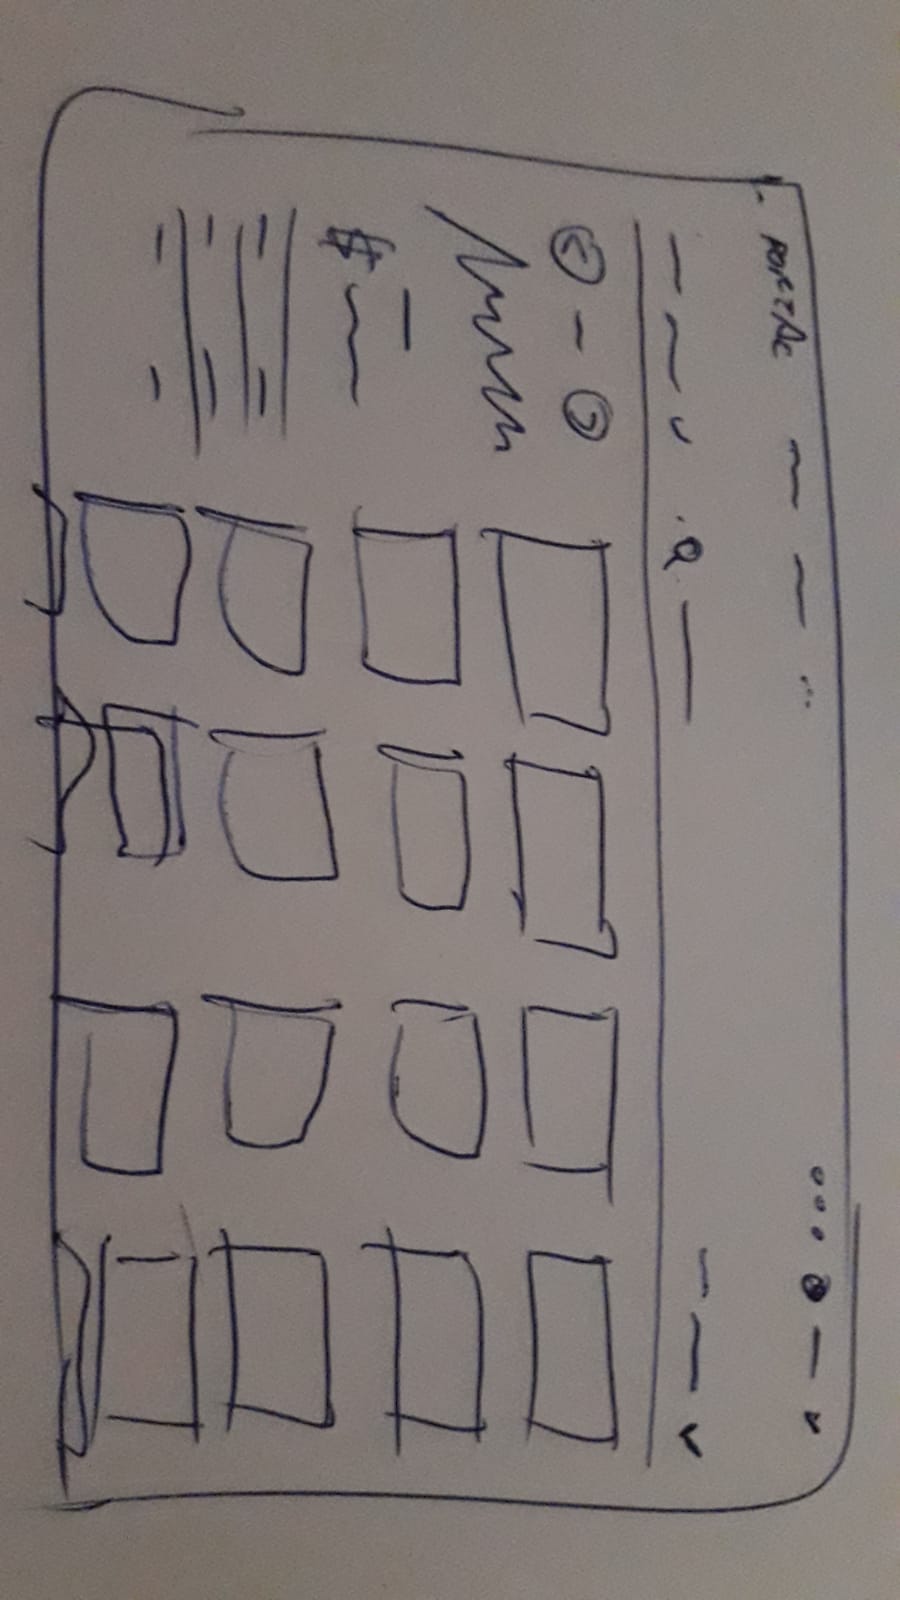 PORTAL
$